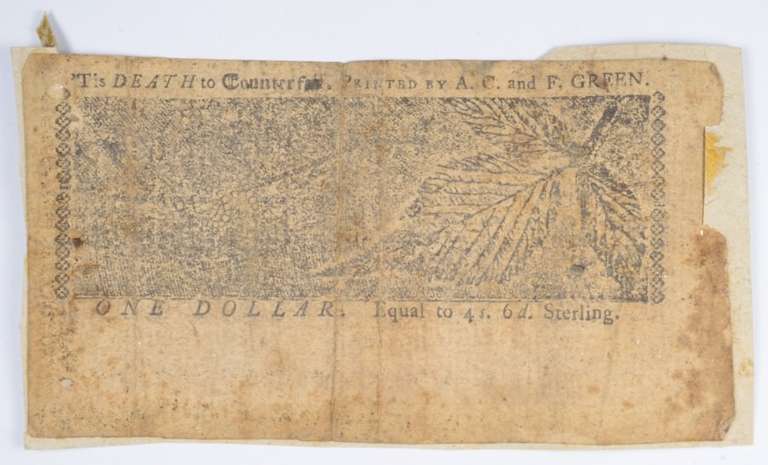 'Tis DEATH to Counterfeit. PRINTED BY A. C. and F. GREEN.
ONE DOLLAR. Equal to 4s. 6d. Sterling.